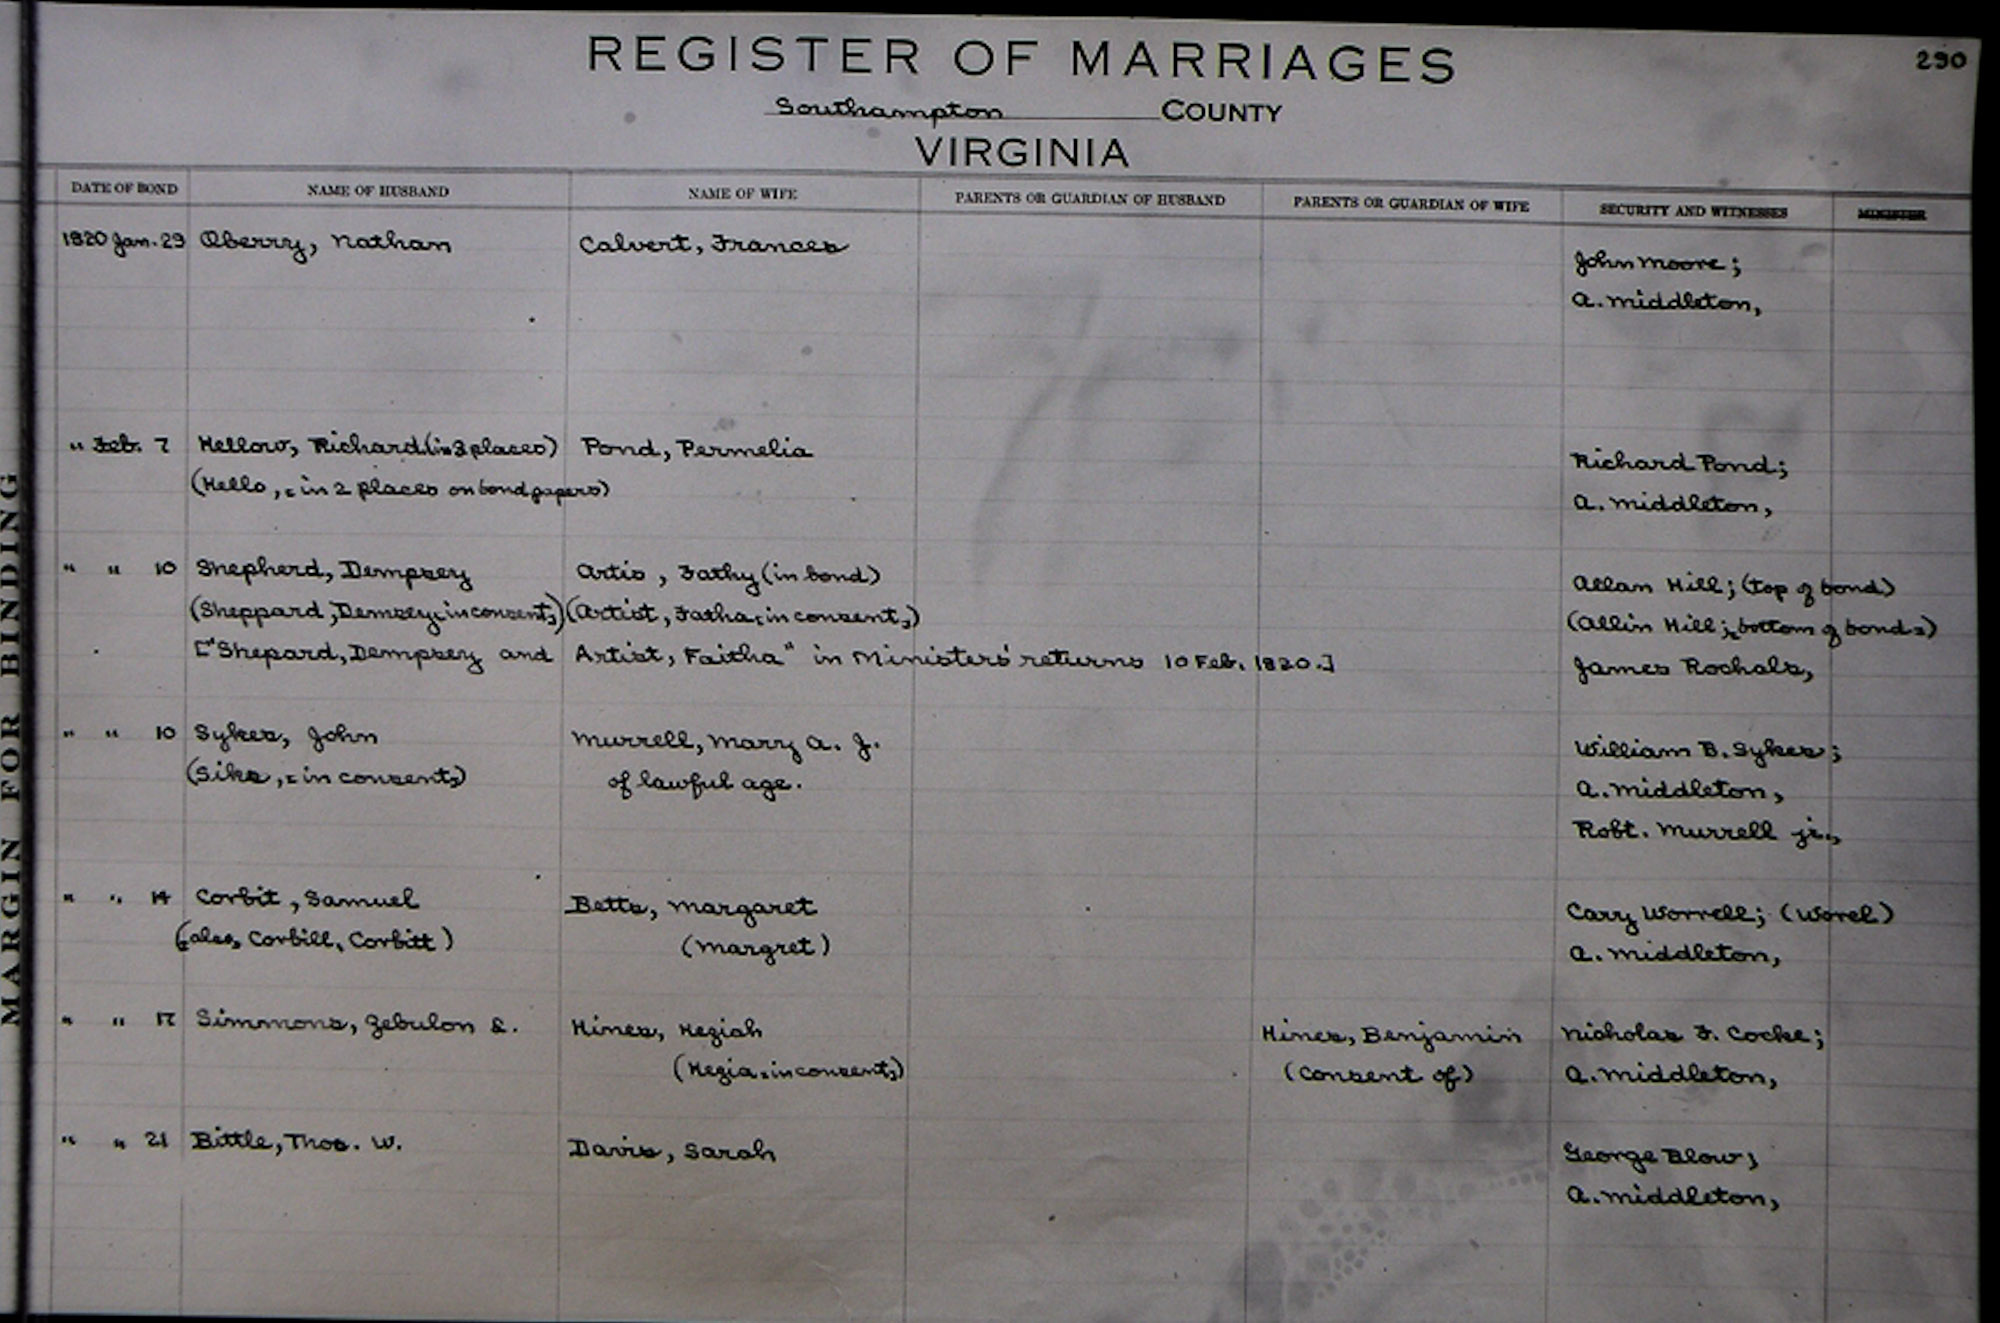 REGISTER OF MARRIAGES
290
Southampton COUNTY
VIRGINIA
MARGIN FOR BINDING
DATE OF BOND NAME OF HUSBAND NAME OF WIFE PARENTS OR GUARDIAN OF HUSBAND PARENTS OR GUARDIAN OF WIFE SECURITY AND WITNESSES MINISTER
1820 Jan. 29 Oberry, Nathan Calvert, Frances
John Moore;
A. Middleton,
" Feb. 7 Hellow, Richard (in 3 places) Pond, Permelia
Richard Pond;
(Hello, in 2 places on bond papers)
A. Middleton,
" " 10 Shepherd, Dempsey Artis, Fathy (in bond)
Allan Hill; (top of bond)
(Sheppard, Demsey in consent,) (Artist, Fatha in consent,)
(Allin Hill; bottom of bond)
["Shepard, Dempsey and Artist, Faitha" in Ministers' returns 10 Feb. 1820.]
James Rochals,
" " 10 Sykes, John Murrell, Mary A. J.
William B. Sykes;
(Siks, in consent,) of lawful age.
A. Middleton,
Robt. Murrell jr.,
" " 14 Corbit, Samuel Betts, Margaret
Cary Worrell; (Worel)
(also, Corbill, Corbitt) (Margret)
A. Middleton,
" " 17 Simmons, Zebulon S. Hines, Keziah Hines, Benjamin Nicholas F. Cocke;
(Kezia in consent,) (Consent of) A. Middleton,
" " 21 Bittle, Thos. W. Davis, Sarah George Blow;
A. Middleton,